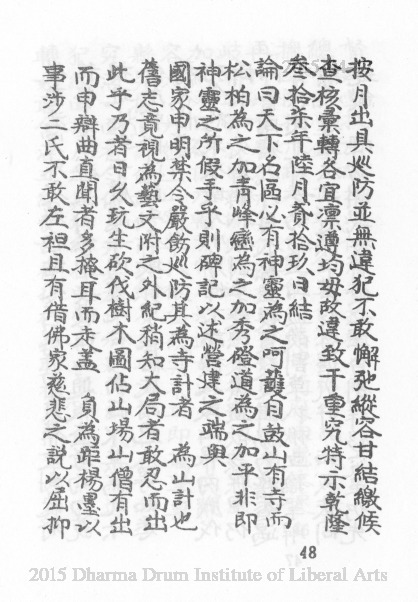 按月出具巡防並無違犯不敢懈弛縱容甘結繳候
查核彙轉各宜凜遵均毋故違致干重究特示乾隆
叁拾柒年陸月貳拾玖日結
論曰天下名區必有神靈為之呵護自鼓山有寺而
松柏為之加青峰巒為之加秀磴道為之加平非即
神靈之所假手乎則碑記以述營建之端與
國家申明禁令嚴飭巡防其為寺計者　為山計也
舊志竟視為藝文附之外紀稍知大局者敢忍而出
此乎乃者日久玩生砍伐樹木圖佔山場山僧有出
而申辯曲直聞者多掩耳而走蓋　自為距楊墨以
事涉二氏不敢左袒且有借佛家慈悲之説以屈抑
48
2015 Dharma Drum Institute of Liberal Arts